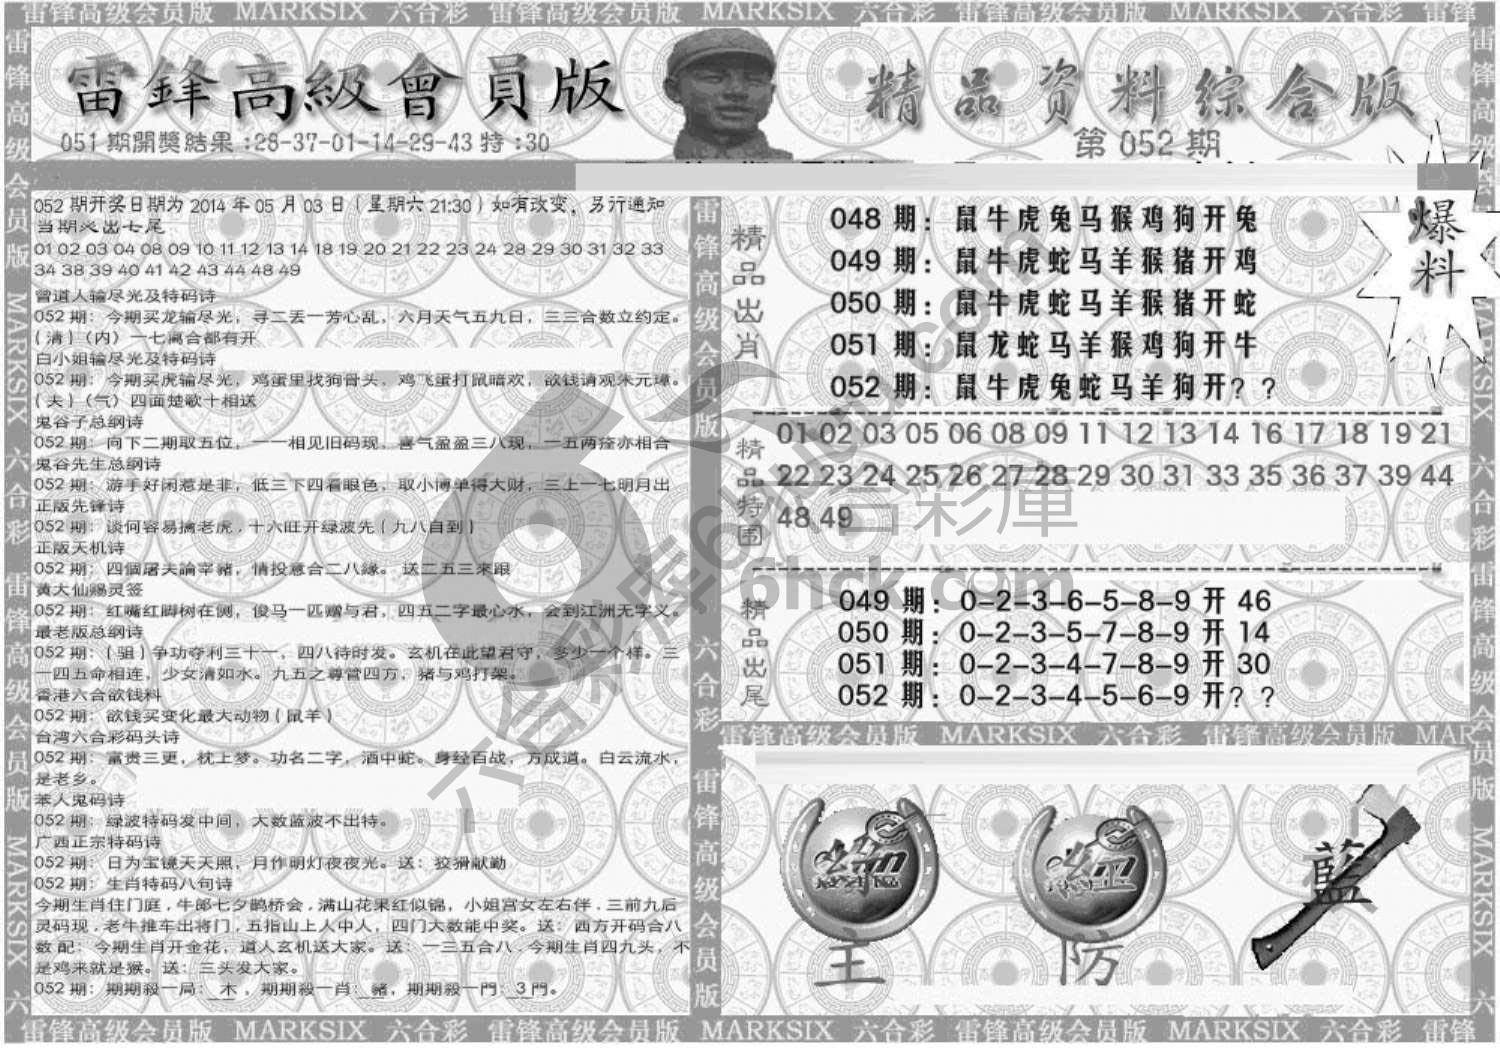 雷锋高级会员版 MARKSIX 六合彩 雷锋高级会员版 MARKSIX 六合彩 雷锋高级会员版 MARKSIX 六合彩 雷锋
雷鋒高級會員版
精品资料综合版
051期開獎結果:28-37-01-14-29-43特:30
第052期
爆料
052期开奖日期为2014年05月03日(星期六21:30)如有改变，另行通知
当期必出七尾
01 02 03 04 08 09 10 11 12 13 14 18 19 20 21 22 23 24 28 29 30 31 32 33
34 38 39 40 41 42 43 44 48 49
曾道人输尽光及特码诗
052期：今期买龙输尽光，寻二丢一芳心乱，六月天气五九日，三三合数立约定。
(清)(内)一七离合都有开
白小姐输尽光及特码诗
052期：今期买虎输尽光，鸡蛋里找狗骨头，鸡飞蛋打鼠暗欢，欲钱请观朱元璋。
(夫)(气)四面楚歌十相送
鬼谷子总纲诗
052期：向下二期取五位，一一相见旧码现，喜气盈盈三八现，一五两独亦相合
鬼谷先生总纲诗
052期：游手好闲惹是非，低三下四看眼色，取小博单得大财，三上一七明月出
正版先锋诗
052期：谈何容易擒老虎，十六旺开绿波先(九八自到)
正版天机诗
052期：四個屠夫論宰豬，情投意合二八緣。送二五三來跟
黄大仙赐灵签
052期：红嘴红脚树在侧，俊马一匹赠与君，四五二字最心水，会到江洲无字义。
最老版总纲诗
052期：(驵)争功夺利三十一，四八待时发。玄机在此望君守，多少一个样。三
一四五命相连，少女清如水。九五之尊管四方，猪与鸡打架。
香港六合欲钱料
052期：欲钱买变化最大动物(鼠羊)
台湾六合彩码头诗
052期：富贵三更，枕上梦。功名二字，酒中蛇。身经百战，方成道。白云流水，
是老乡。
苯人鬼码诗
052期：绿波特码发中间，大数蓝波不出特。
广西正宗特码诗
052期：日为宝镜天天照，月作明灯夜夜光。送：狡猾献勤
052期：生肖特码八句诗
今期生肖住门庭，牛郎七夕鹊桥会，满山花果红似锦，小姐宫女左右伴，三前九后
灵码现，老牛推车出将门，五指山上人中人，四门大数能中奖。送：西方开码合八
数配：今期生肖开金花，道人玄机送大家。送：一三五合八，今期生肖四九头，不
是鸡来就是猴。送：三头发大家。
052期：期期殺一局：木，期期殺一肖：豬，期期殺一門：3門。
精品出肖
048期：鼠牛虎兔马猴鸡狗开兔
049期：鼠牛虎蛇马羊猴猪开鸡
050期：鼠牛虎蛇马羊猴猪开蛇
051期：鼠龙蛇马羊猴鸡狗开牛
052期：鼠牛虎兔蛇马羊狗开？？
精品特围
01 02 03 05 06 08 09 11 12 13 14 16 17 18 19 21
22 23 24 25 26 27 28 29 30 31 33 35 36 37 39 44
48 49
精品出尾
049期：0-2-3-6-5-8-9开46
050期：0-2-3-5-7-8-9开14
051期：0-2-3-4-7-8-9开30
052期：0-2-3-4-5-6-9开？？
雷锋高级会员版 MARKSIX 六合彩 雷锋高级会员版 MAR
主
防
藍
六合彩庫
6hck.com
雷锋高级会员版 MARKSIX 六合彩 雷锋高级会员版 MARKSIX 六合彩 雷锋高级会员版 MARKSIX 六合彩 雷锋